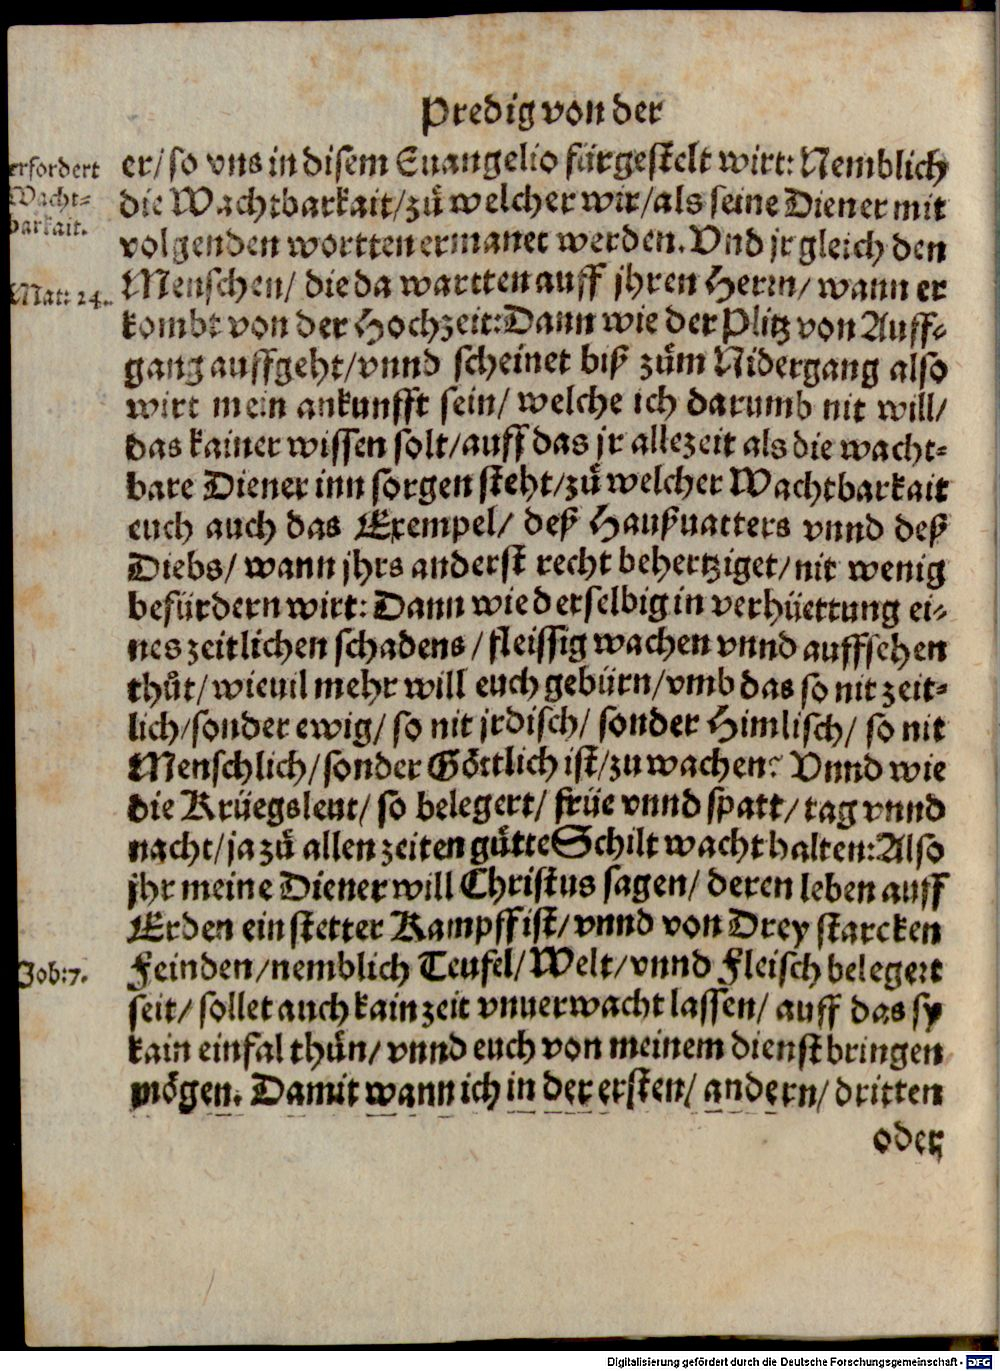 Predig von der
erfordert
Wacht-
barkait.
Mat: 24.
er/ so vns in disem Euangelio fürgestelt wirt: Nemblich
die Wachtbarkait/ zů welcher wir/ als seine Diener mit
volgenden wortten ermanet werden. Vnd jr gleich den
Menschen/ die da wartten auff jhren Herrn/ wann er
kombt von der Hochzeit: Dann wie der Plitz von Auff-
gang auffgeht/ vnnd scheinet biß zům Nidergang also
wirt mein ankunfft sein/ welche ich darumb nit will/
das kainer wissen solt/ auff das jr allezeit als die wacht-
bare Diener inn sorgen steht/ zů welcher Wachtbarkait
euch auch das Exempel/ deß Haußuatters vnnd deß
Diebs/ wann jhrs anderst recht behertziget/ nit wenig
befürdern wirt: Dann wie derselbig in verhüettung ei-
nes zeitlichen schadens/ fleissig wachen vnnd auffsehen
thůt/ wieuil mehr will euch gebürn/ vmb das so nit zeit-
lich/ sonder ewig/ so nit jrdisch/ sonder Himlisch/ so nit
Menschlich/ sonder Göttlich ist/ zu wachen: Vnnd wie
die Krüegsleut/ so belegert/ früe vnnd spatt/ tag vnnd
nacht/ ja zů allen zeiten gůtte Schilt wacht halten: Also
jhr meine Diener will Christus sagen/ deren leben auff
Erden ein stetter Kampff ist/ vnnd von Drey starcken
Job: 7.
Feinden/ nemblich Teufel/ Welt/ vnnd Fleisch belegert
seit/ sollet auch kain zeit vnuerwacht lassen/ auff das sy
kain einfal thůn/ vnnd euch von meinem dienst bringen
mögen. Damit wann ich in der ersten/ andern/ dritten
oder
Digitalisierung gefördert durch die Deutsche Forschungsgemeinschaft - DFG